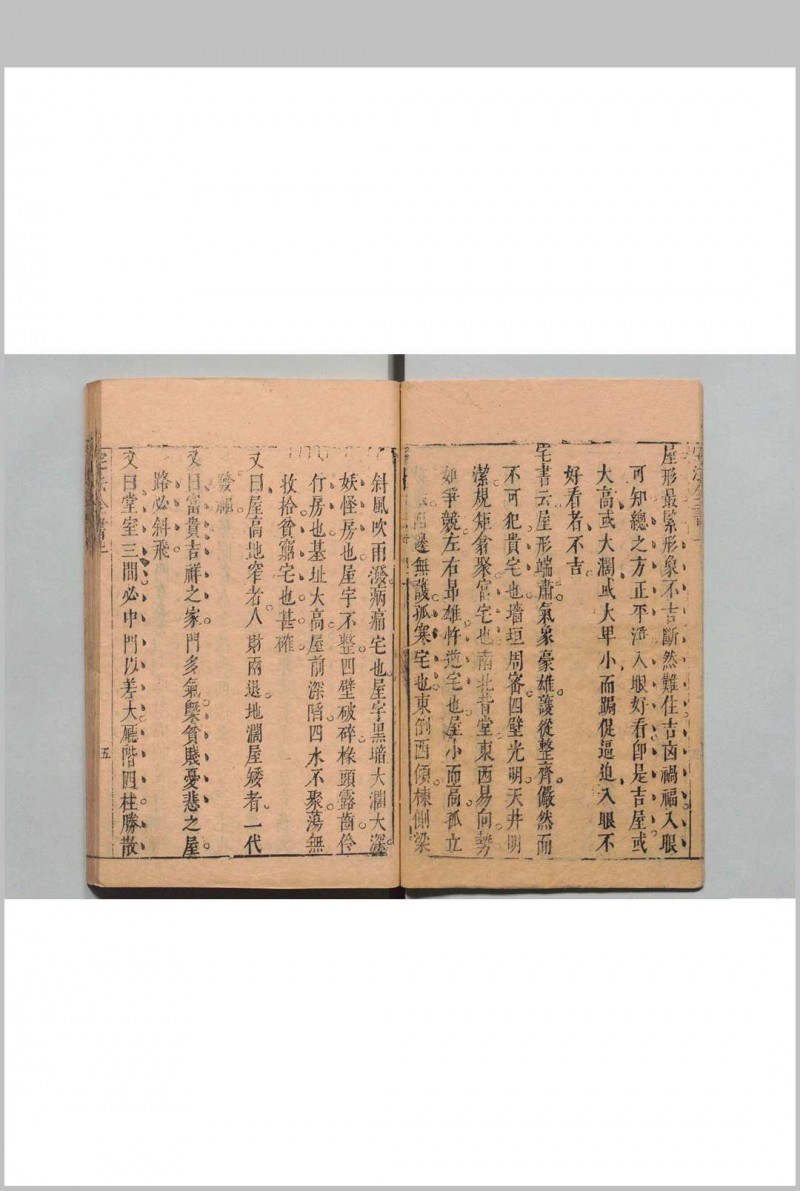 屋形最緊形象不吉斷然難住吉凶禍福入眼
可知總之方正平淨入眼好看卽是吉屋或
大高或大濶或大卑小而跼促逼迫入眼不
好看者不吉
宅書云屋形端肅氣象豪雄護從整齊儼然而
不可犯貴宅也墻垣周密四壁光明天井明
潔規矩翕聚富宅也南北皆堂東西易向勢
如爭競左右昂雄忤逆宅也屋小而高孤立
無護孤寒宅也東倒西傾棟側梁
斜風吹雨潑病痛宅也屋宇黑暗大濶大深
妖怪房也屋宇不整四壁破碎椽頭露齒伶
仃房也基址大高屋前深階四水不聚蕩無
收拾貧窮宅也甚確
又曰屋高地窄者人財兩退地濶屋矮者一代
發福
又曰富貴吉祥之家門多氣槩貧賤憂悲之屋
路必斜飛
又曰堂室三間必中門以差大廳階四柱勝散
五